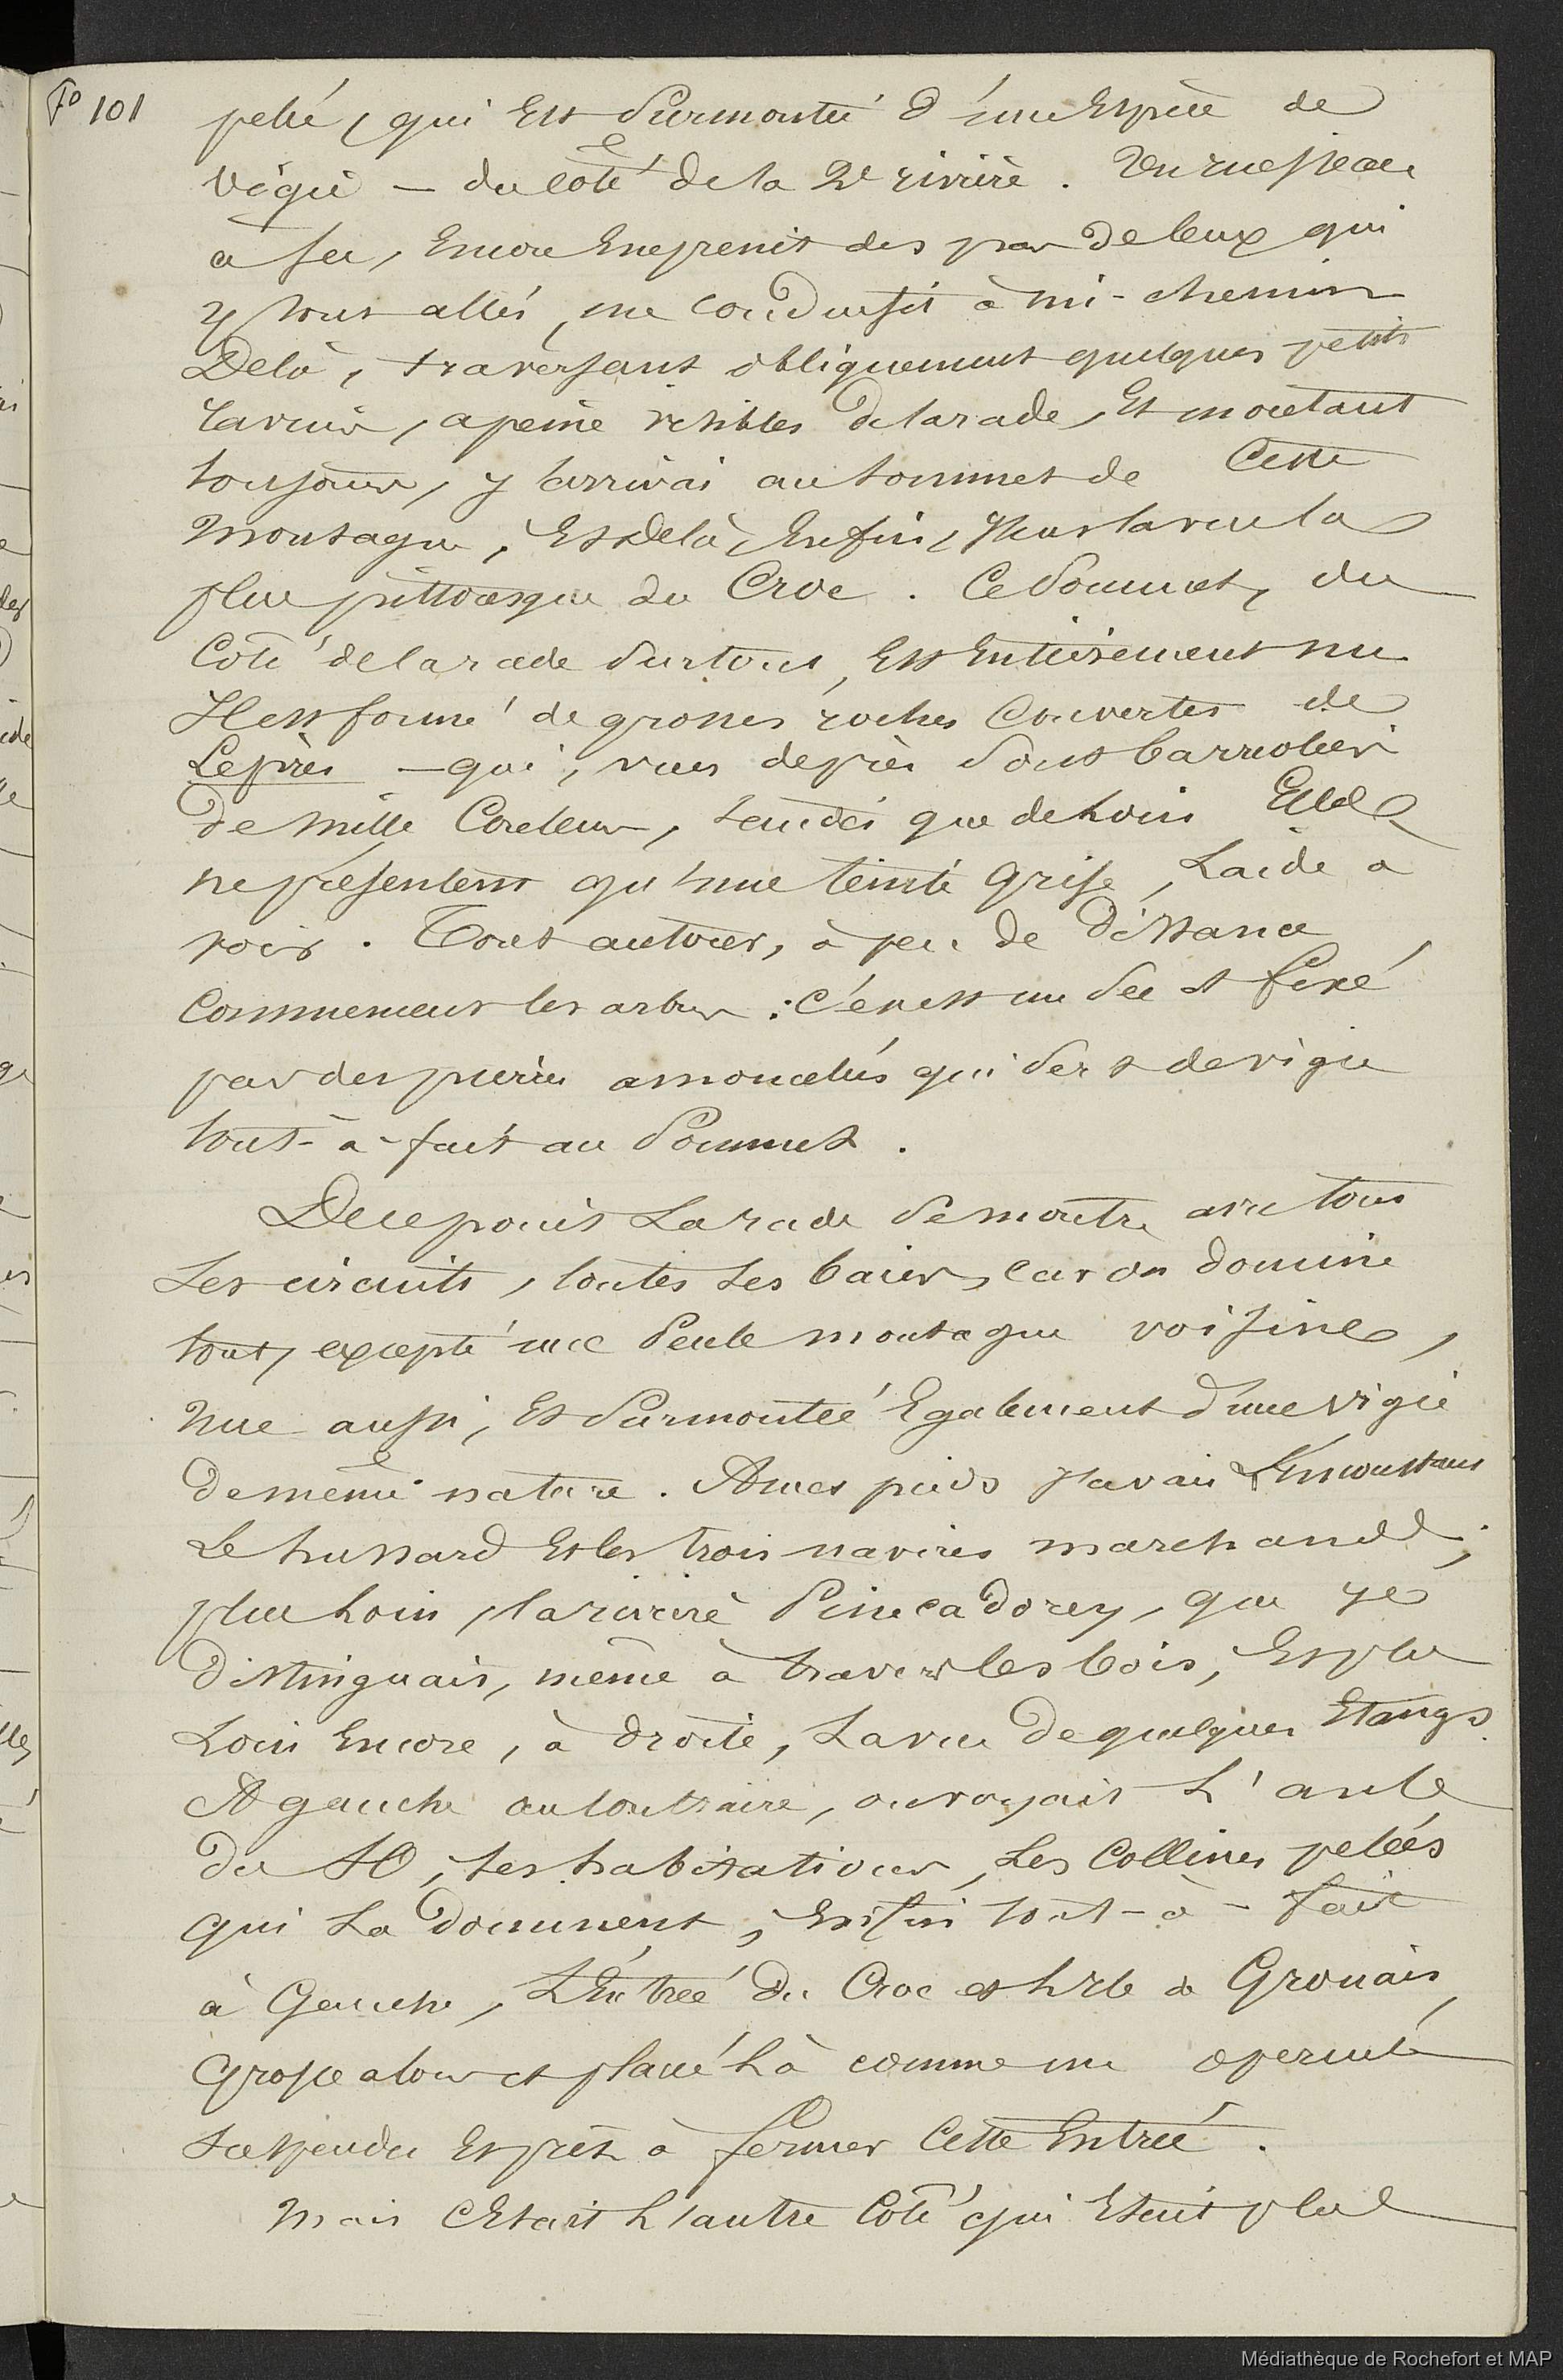 Fo 101
pelé, qui Est Surmonté d'une Espèce de
Végie — du coté de la 2e rivière. Un ruisseau
a sec, Encore Empreint des pas de ceux qui
y sont allés, me conduisit à mi-chemin
Delà, traversant obliquement quelques petits
ravins, apeine visibles de la rade, Et montant
toujours, j'arrivai au sommet de Cette
Montagne, Et delà, Enfin, J'eus la vue la
plus pittoresque du Croc. Ce Sommet, du
Coté de la rade Surtout, Est Entièrement nu
Il est formé de grosses roches Couvertes de
Lepres — qui, vues de près Sont bariolées
de mille Couleurs, tandis que de Loin Elles
ne présentent qu'une teinte Grise, Laide à
voir. Tout autour, à peu de Distance
Commencent les arbres : C'en est un Sec et fixé
par des pierres amoncelés qui Sert de vigie
tout-à-fait au Sommet.
De ce point La rade Se montre avec tous
Ses circuits, toutes Ses baies, car on domine
tout, excepté une Seule montagne voisine,
Nue aussi, Et Surmontée Egalement d'une Vigie
de même nature. A mes pieds J'avais L'inconstant
Le hussard Et les trois navires marchands ;
plus Loin, la rivière Pincadorey, que je
Distinguais, même à travers les bois, Et plus
Loin Encore, à droite, La vue de quelques Etangs.
A gauche au contraire, on voyait L'anse
du SO, Ses habitations, Les Collines pelées
qui La Dominent, Enfin tout-à-fait
à Gauche, L'Entrée du Croc et L'île de Grouais,
Grosse alors et placé Là comme un opercule
Suspendu Et prêt à fermer Cette Entrée.
Mais C'Etait L'autre Coté qui Etait plus
Médiathèque de Rochefort et MAP